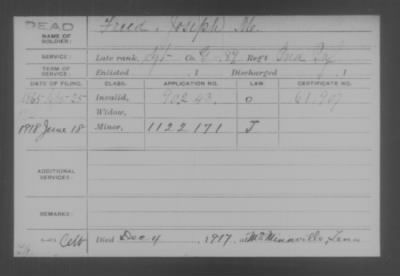 DEAD
NAME OF SOLDIER: Freed, Joseph M.
SERVICE: Late rank, Co. G, 89 Reg't Ind. Inf.
TERM OF SERVICE: Enlisted , 1 Discharged , 1
DATE OF FILING. CLASS. APPLICATION NO. LAW CERTIFICATE NO.
Invalid,
Widow,
1918 June 18 Minor, 1122171 J
ADDITIONAL SERVICES:
REMARKS:
Died Dec 4, 1917, at McMinnville, Tenn